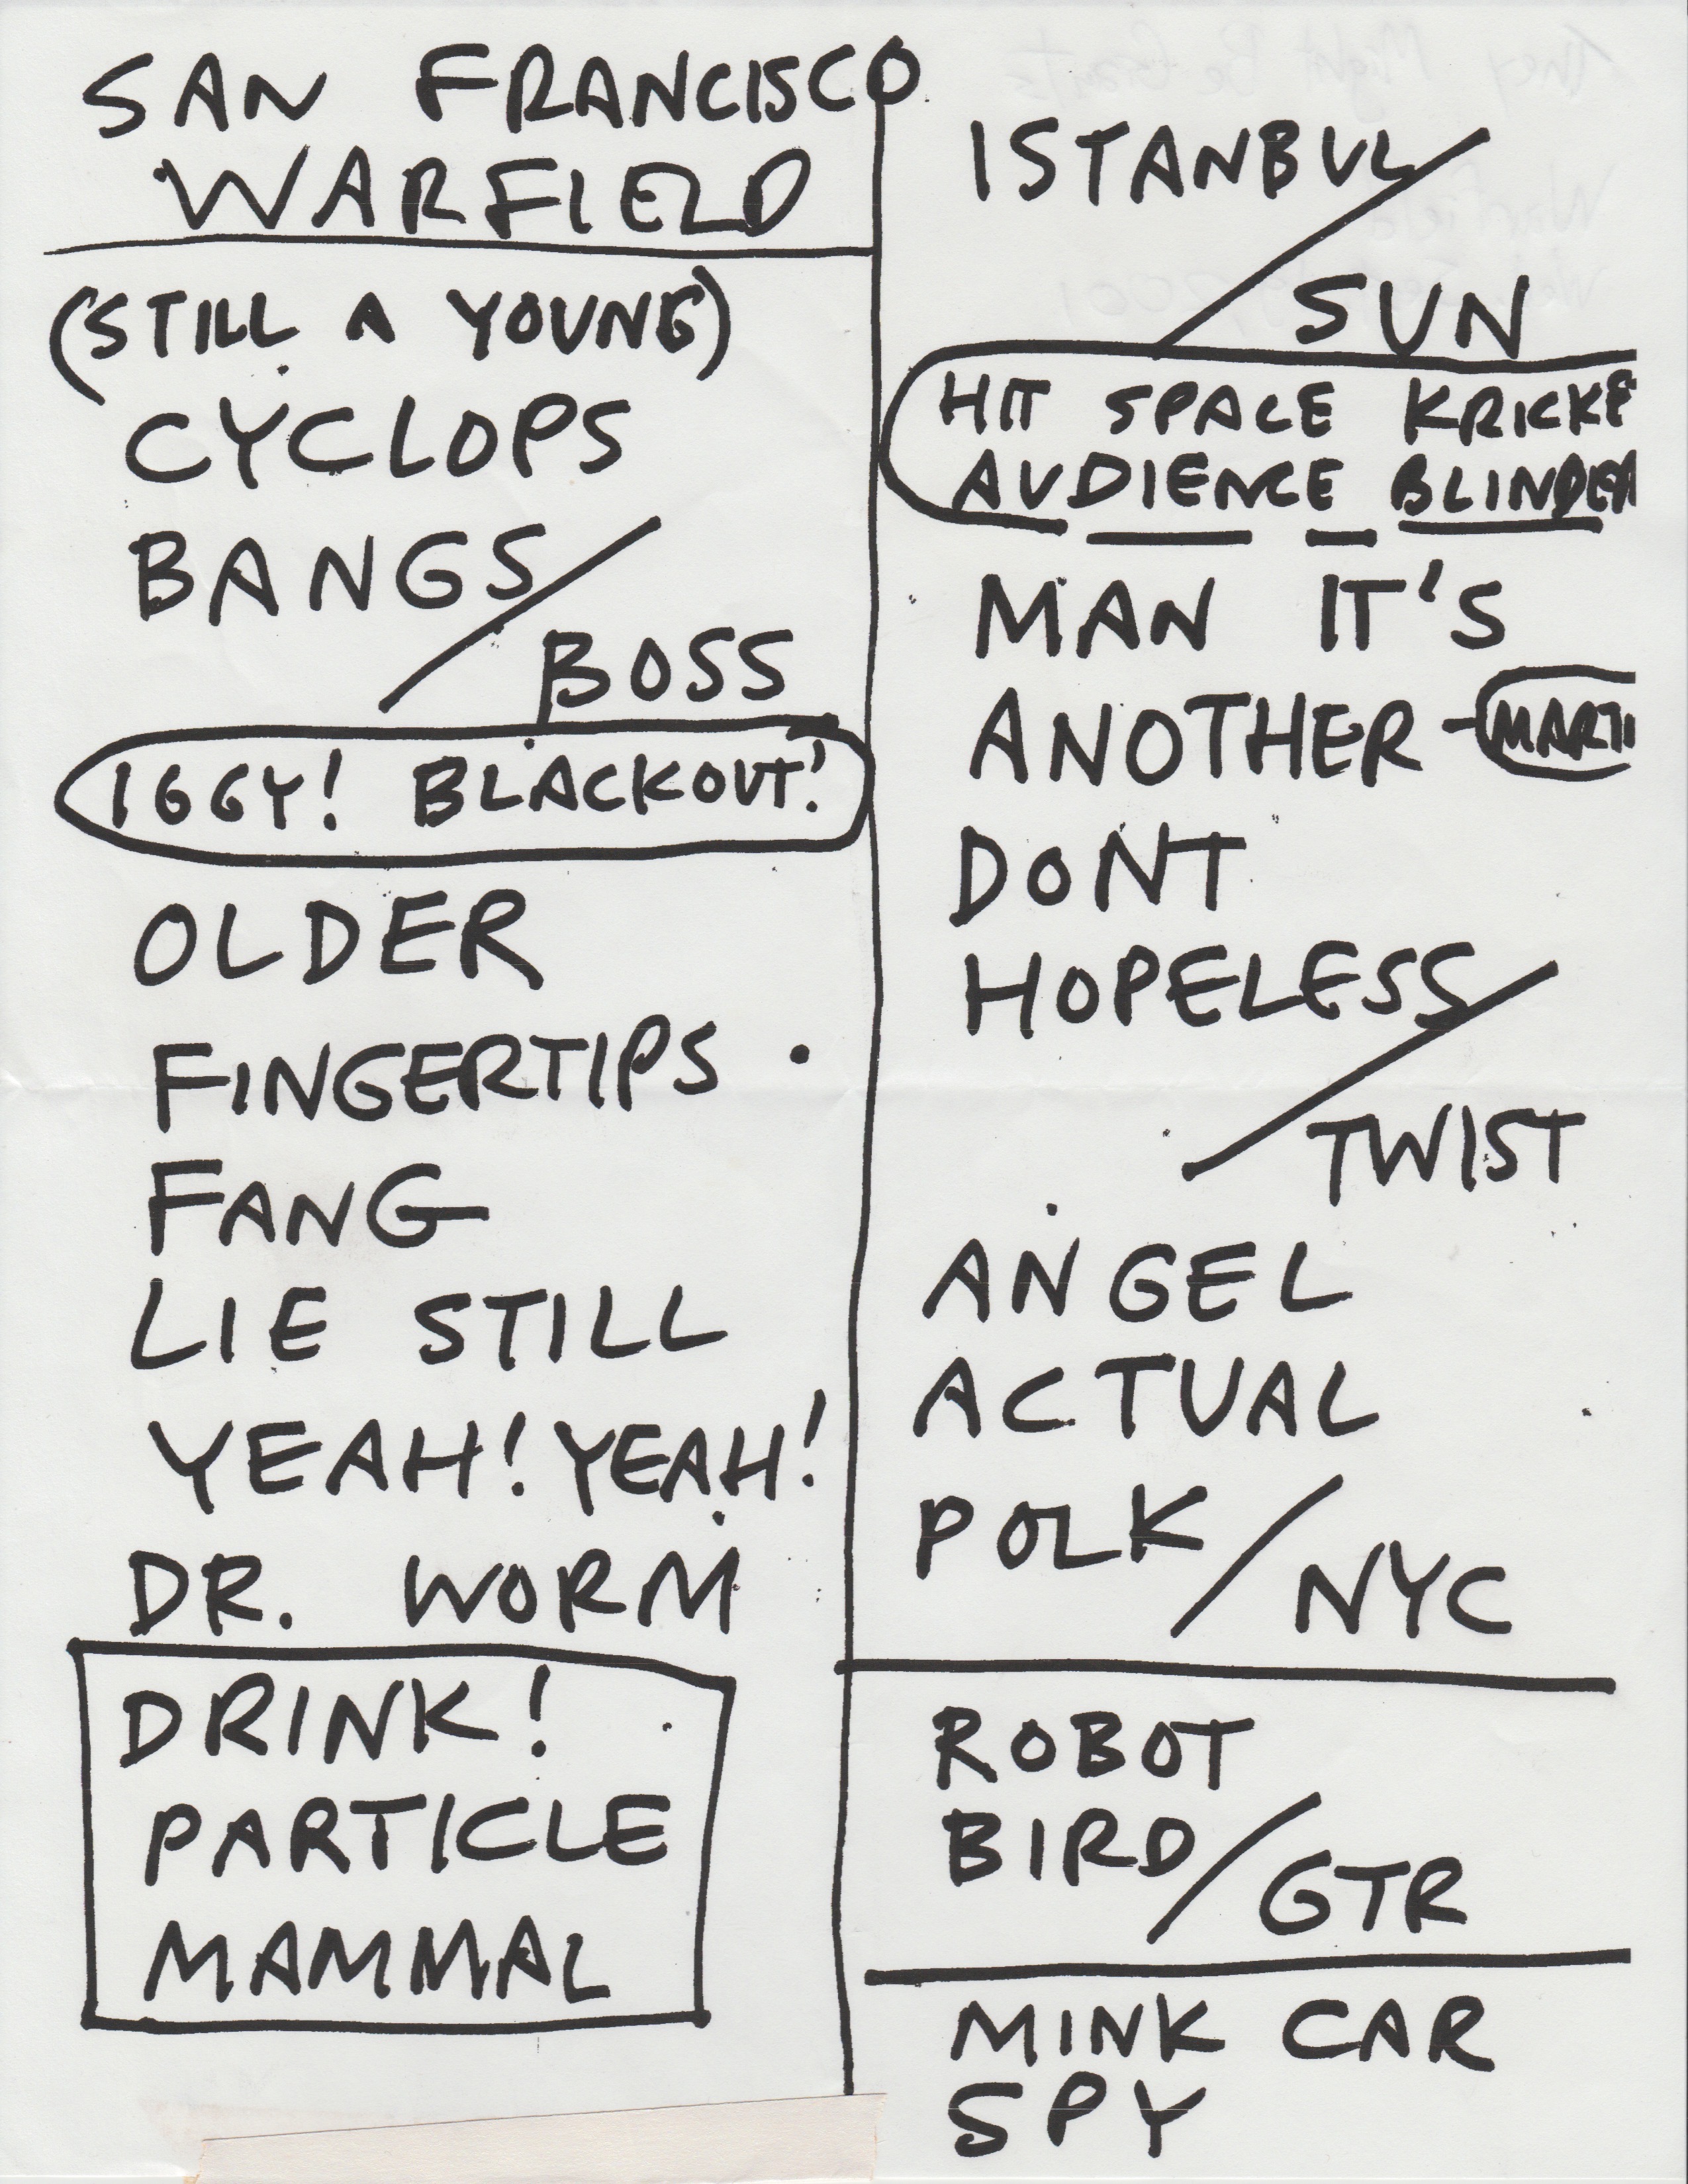 SAN FRANCISCO
WARFIELD
(STILL A YOUNG)
CYCLOPS
BANGS/
BOSS
IGGY! BLACKOUT!
OLDER
FINGERTIPS
FANG
LIE STILL
YEAH! YEAH!
DR. WORM
DRINK!
PARTICLE
MAMMAL
They Might Be Giants
Warfield
ISTANBUL/
SUN
HIT SPACE KRICKE
AUDIENCE BLINDER
MAN IT'S
ANOTHER - MARTI
DONT
HOPELESS/
TWIST
ANGEL
ACTUAL
POLK/NYC
ROBOT
BIRD/GTR
MINK CAR
SPY